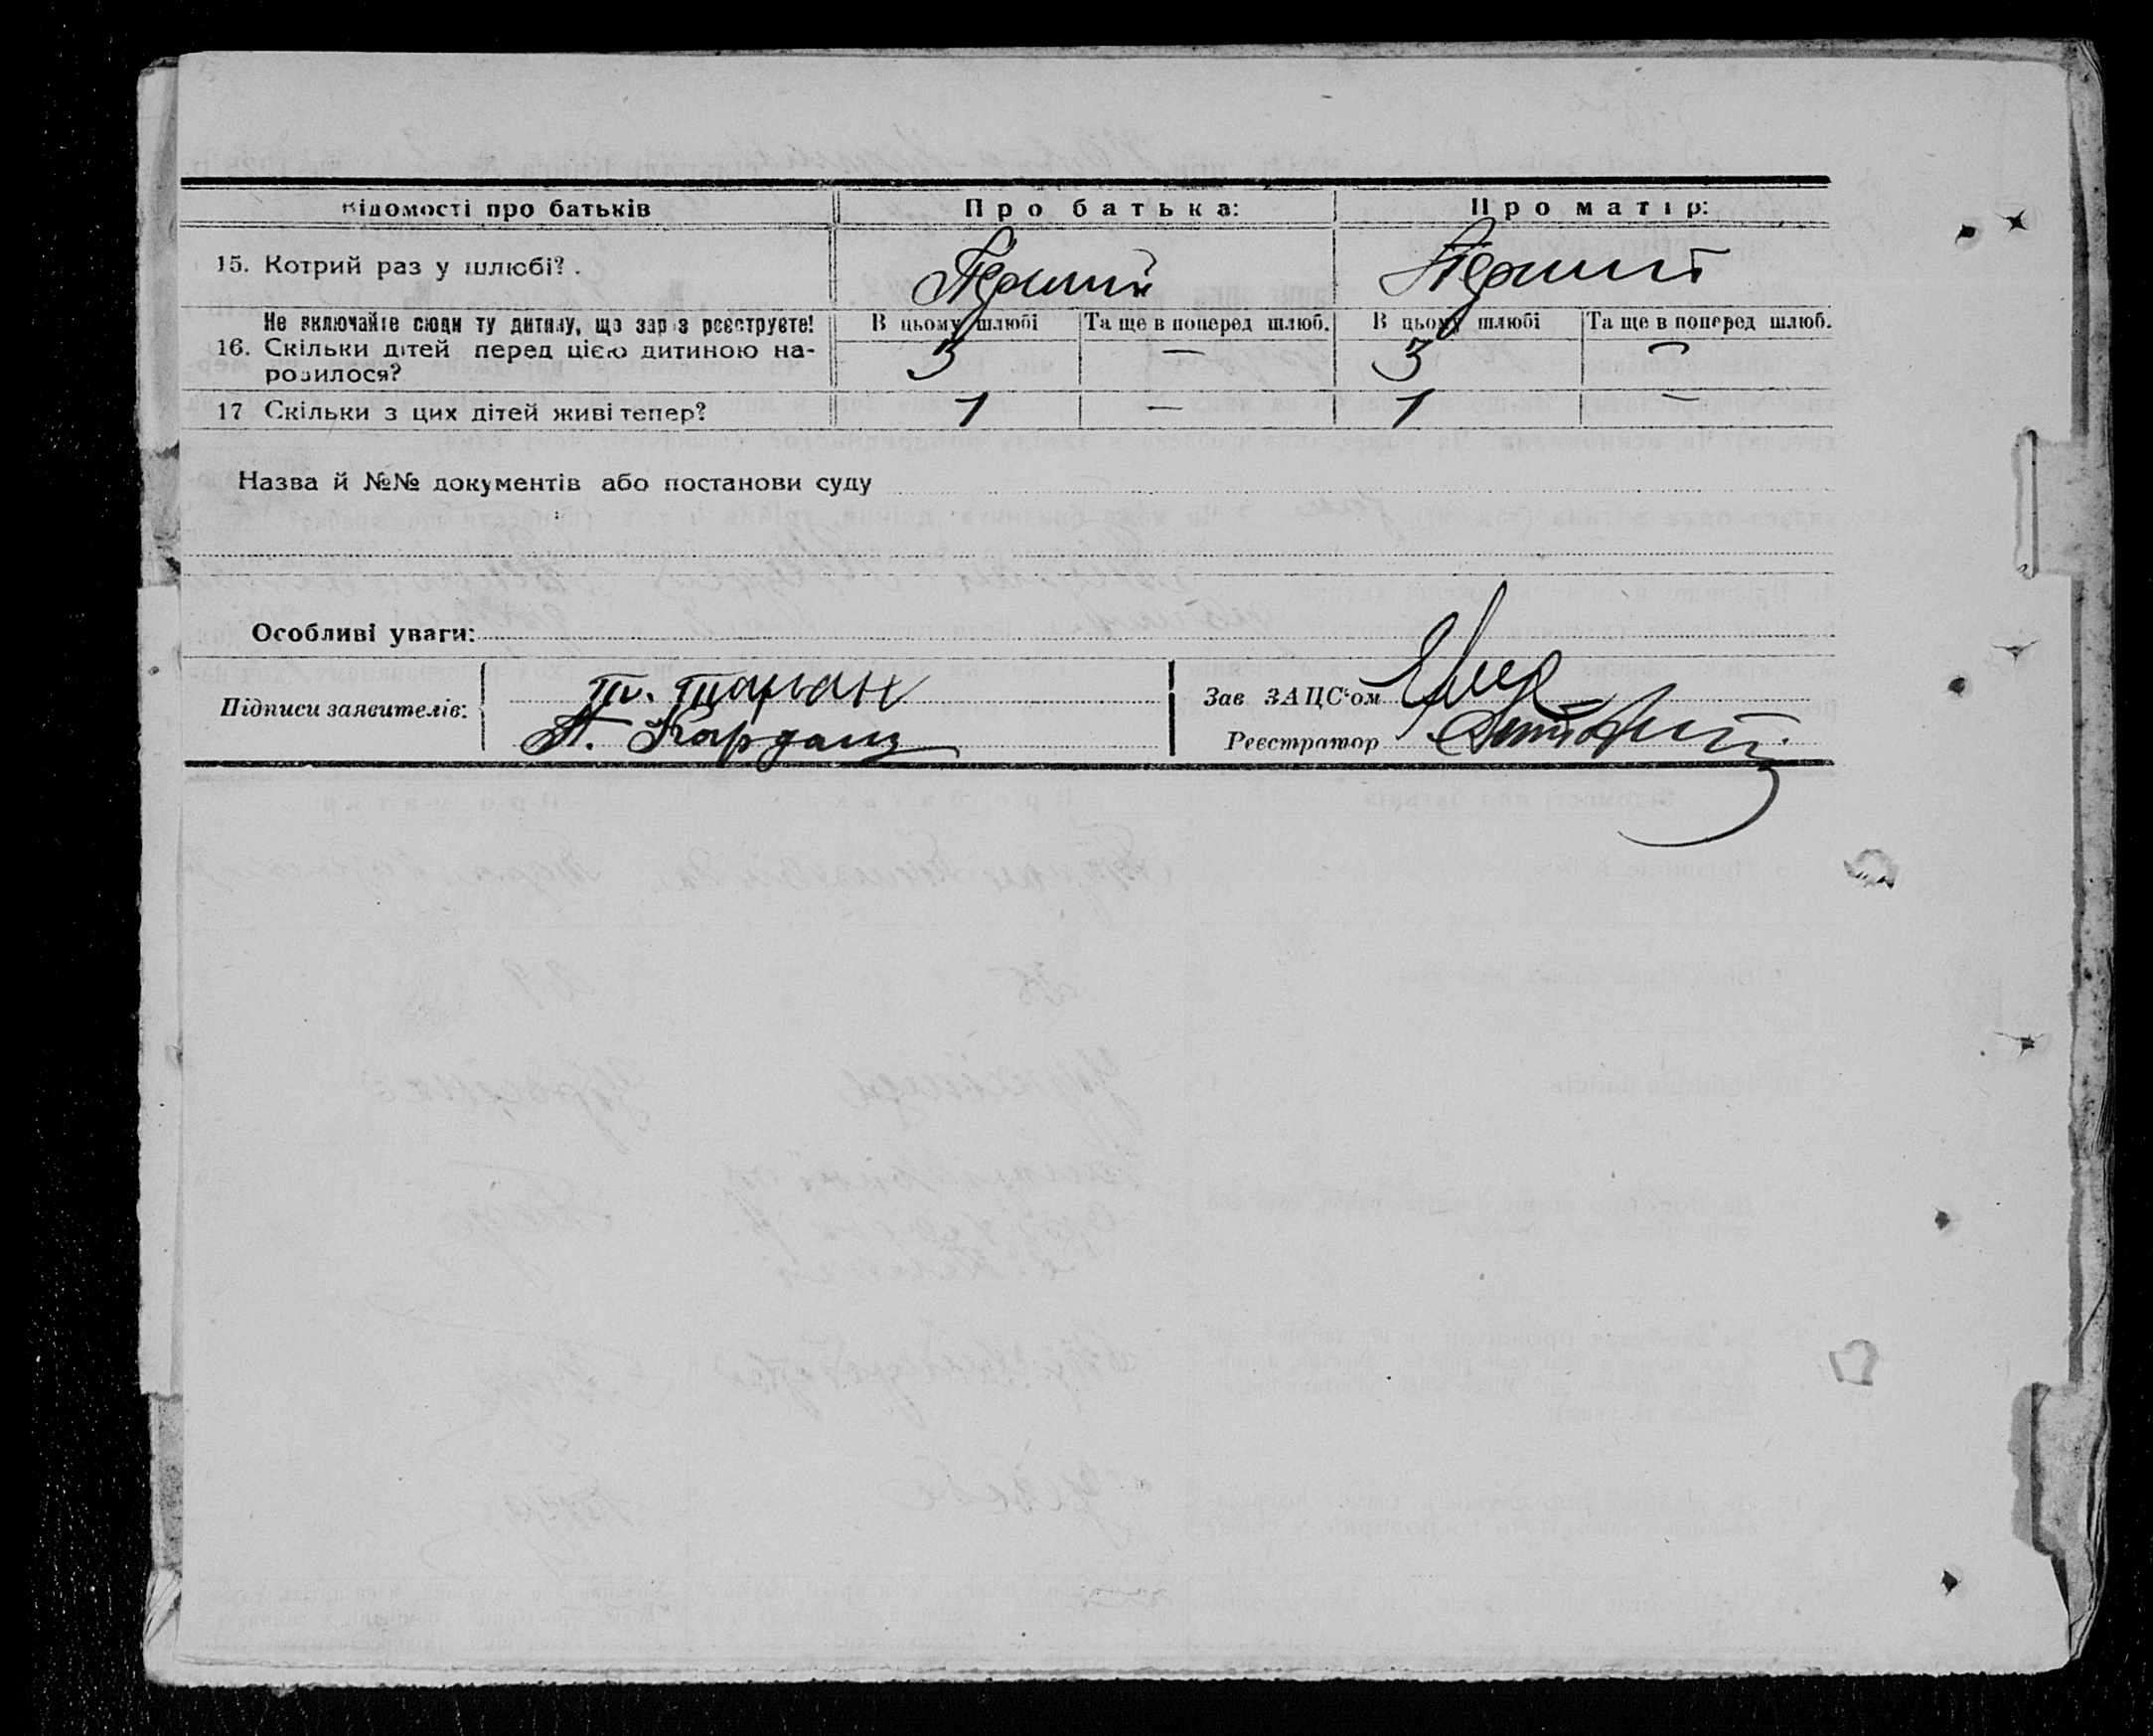 Відомості про батьків Про батька: Про матір:
15. Котрий раз у шлюбі? Перший Перший
Не включайте сюди ту дитину, що зараз реєструєте! В цьому шлюбі Та ще в поперед шлюб. В цьому шлюбі Та ще в поперед шлюб.
16. Скільки дітей перед цією дитиною на- 3 — 3 —
родилося?
17 Скільки з цих дітей живі тепер? 1 — 1 —
Назва й №№ документів або постанови суду
Особливі уваги:
Підписи заявителів: Т. Таран
П. Кардаш
Зав ЗАЦС'ом
Реєстратор